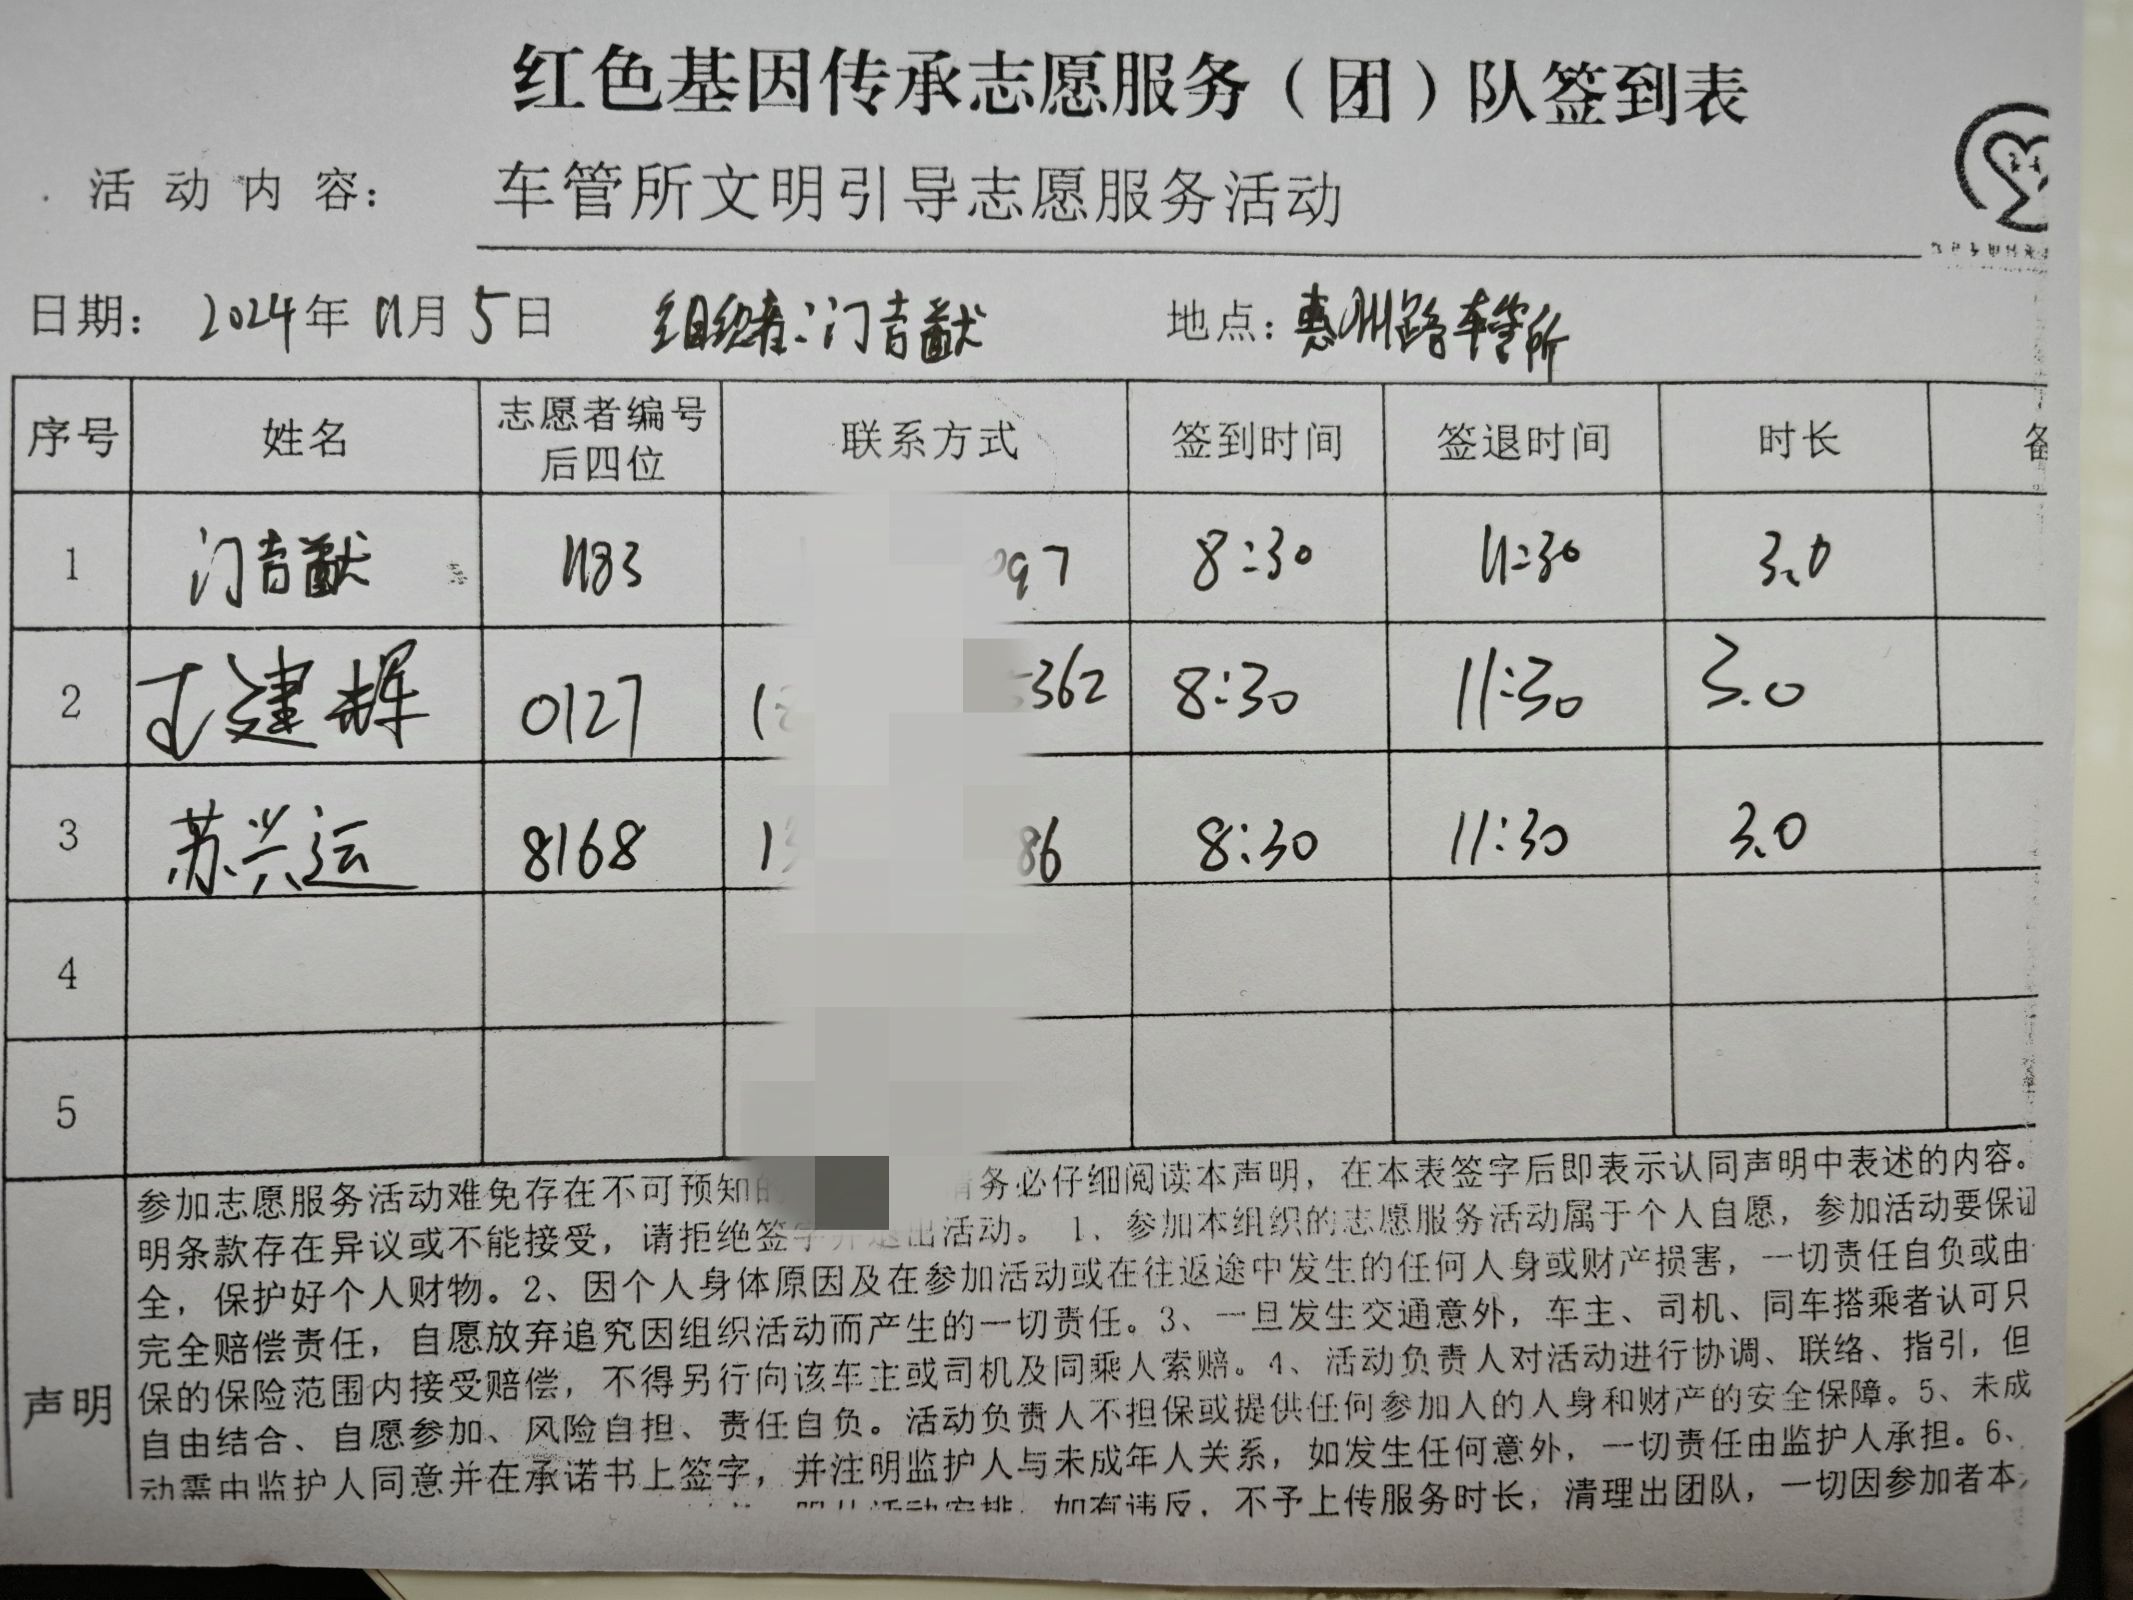 红色基因传承志愿服务（团）队签到表
活动内容： 车管所文明引导志愿服务活动
日期： 2024年 11月 5日 组织者：门吉猷 地点：惠州路车管所
序号 姓名 志愿者编号后四位 联系方式 签到时间 签退时间 时长 备
1 门吉猷 1183 97 8:30 11:30 3.0
2 于建辉 0127 1 362 8:30 11:30 3.0
3 苏兴运 8168 1 86 8:30 11:30 3.0
4
5
声明
参加志愿服务活动难免存在不可预知的 请务必仔细阅读本声明，在本表签字后即表示认同声明中表述的内容。
明条款存在异议或不能接受，请拒绝签字并退出活动。 1、参加本组织的志愿服务活动属于个人自愿，参加活动要保证
全，保护好个人财物。2、因个人身体原因及在参加活动或在往返途中发生的任何人身或财产损害，一切责任自负或由
完全赔偿责任，自愿放弃追究因组织活动而产生的一切责任。3、一旦发生交通意外，车主、司机、同车搭乘者认可只
保的保险范围内接受赔偿，不得另行向该车主或司机及同乘人索赔。4、活动负责人对活动进行协调、联络、指引，但
自由结合、自愿参加、风险自担、责任自负。活动负责人不担保或提供任何参加人的人身和财产的安全保障。5、未成
动需由监护人同意并在承诺书上签字，并注明监护人与未成年人关系，如发生任何意外，一切责任由监护人承担。6、
服从活动安排，如有违反，不予上传服务时长，清理出团队，一切因参加者本人